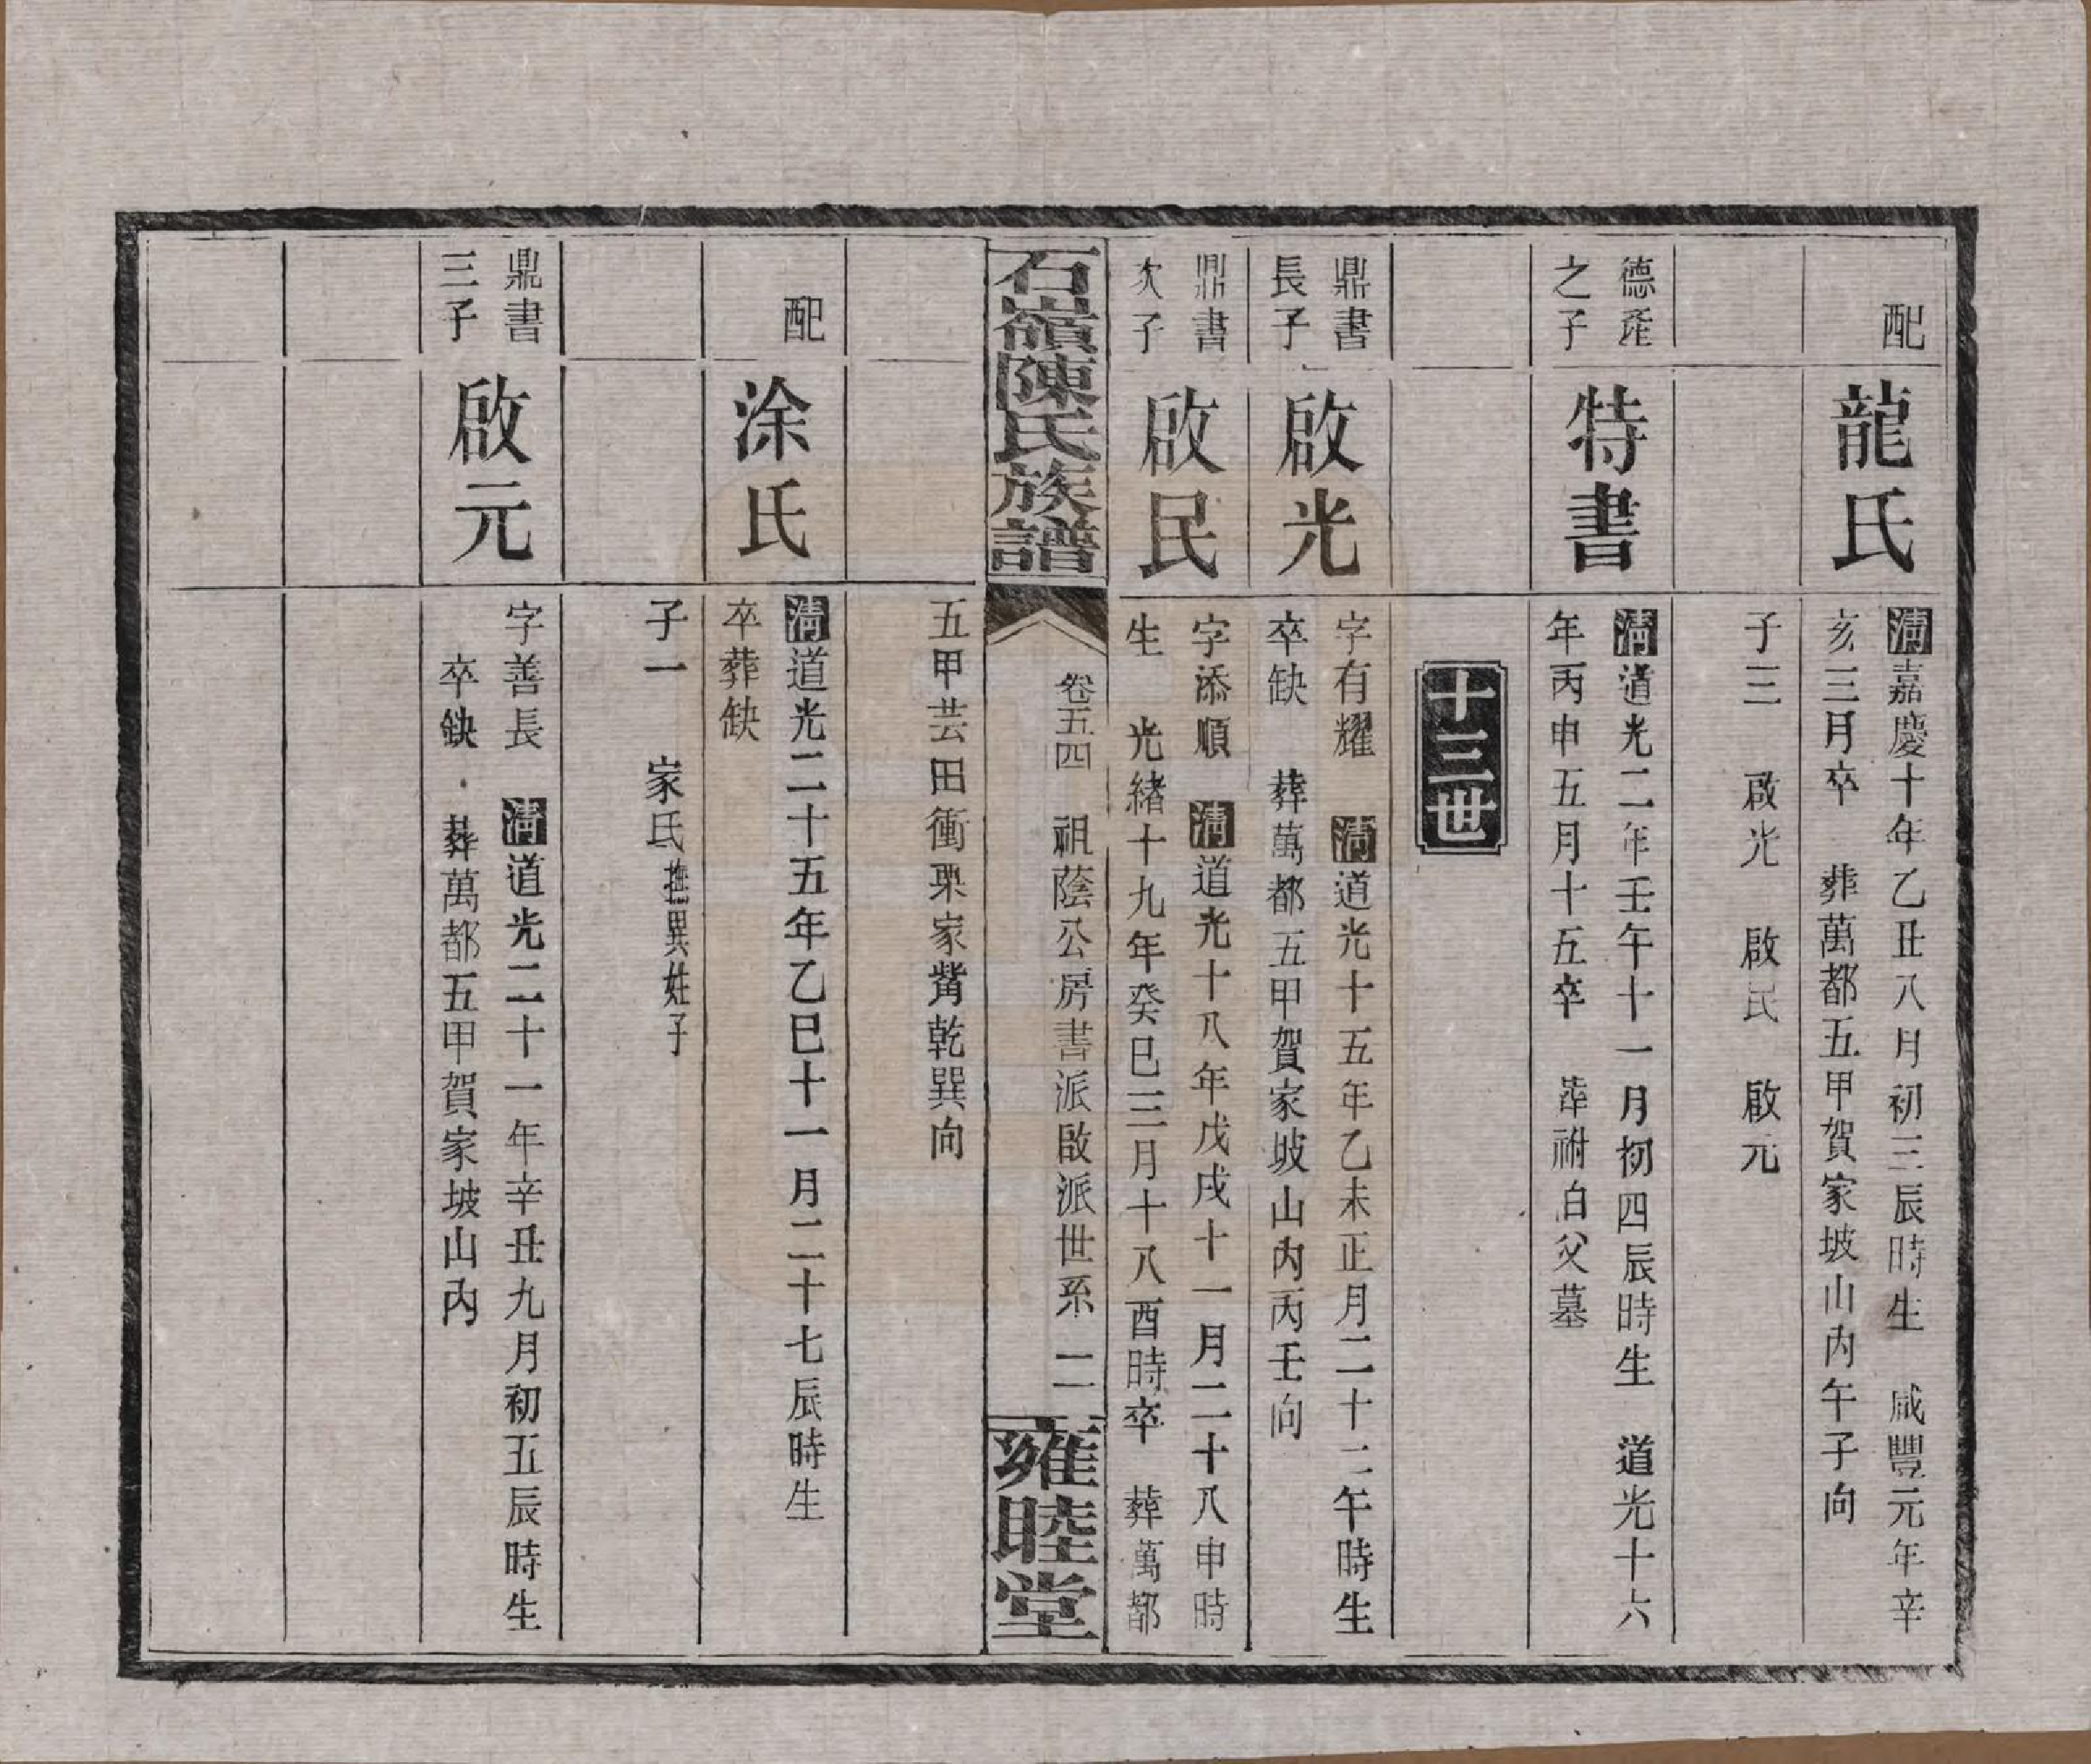 配
龍氏
清嘉慶十年乙丑八月初三辰時生　咸豐元年辛
亥三月卒　葬萬都五甲賀家坡山內午子向
子三　啟光　啟民　啟元
德產
之子
特書
清道光二年壬午十一月初四辰時生　道光十六
年丙申五月十五卒　葬祔伯父墓
十三世
鼎書
長子
啟光
字有耀　清道光十五年乙未正月二十二午時生
卒缺　葬萬都五甲賀家坡山內丙壬向
鼎書
次子
啟民
字添順　清道光十八年戊戌十一月二十八申時
生　光緒十九年癸巳三月十八酉時卒　葬萬都
石嶺陳氏族譜
卷五四　祖蔭公房書派啟派世系　二
雍睦堂
五甲芸田衝栗家觜乾巽向
配
涂氏
清道光二十五年乙巳十一月二十七辰時生
卒葬缺
子一　家氏撫異姓子
鼎書
三子
啟元
字善長　清道光二十一年辛丑九月初五辰時生
卒缺　葬萬都五甲賀家坡山內